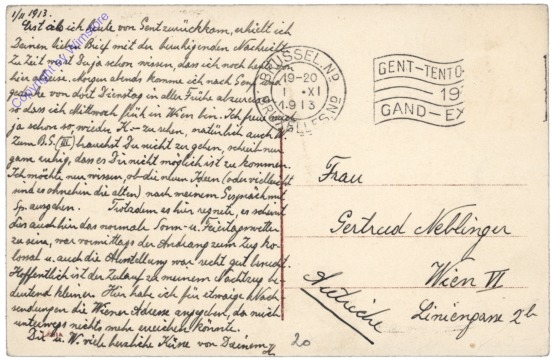 1/11 1913.
Erst als ich heute von Gent zurückkam, erhielt ich
Deinen lieben Brief mit der beruhigenden Nachricht.
Zu Zeit wirst Du ja schon wissen, dass ich noch heute
hier Morgen abends komme ich nach Gent
von dort Dienstag in aller Frühe
so dass ich Mittwoch früh in Wien bin. Ich freue mich
ja schon so, wieder K.- zu sehen, natürlich auch W.
Zum B.S. (III) brauchst Du nicht zu gehen, scheint mir
ganz ruhig, dass es Dir nicht möglich ist zu kommen.
Ich möchte nur wissen, ob die neuen Ideen (oder vielleicht
sind es ohnehin die alten) nach meinem Gespräch mit
Sp. ausgehen. Trotzdem es hier regnete, es scheint
das auch hier das normale Sonn- u. Feiertagswetter
zu sein, war vormittags der Andrang zum Zug ko-
lossal u. auch die Ausstellung war recht gut besucht.
Hoffentlich ist der Zulauf zu meinem Nachtzug be-
deutend kleiner. Hier habe ich für etwaige Nach-
sendungen die Wiener Adresse angegeben, da mich
unterwegs nichts mehr erreichen könnte.
Dir u. W. viele herzliche Küsse von Deinem
Copyright by Wilmstore
BRUSSEL.Nd
19-20
1 ·XI
1913
BRUXELLES.Nd
GENT-TENTO
19
GAND-EX
Frau
Gertrud Neblinger
Wien VI
Liniengasse 2b
Autriche
20